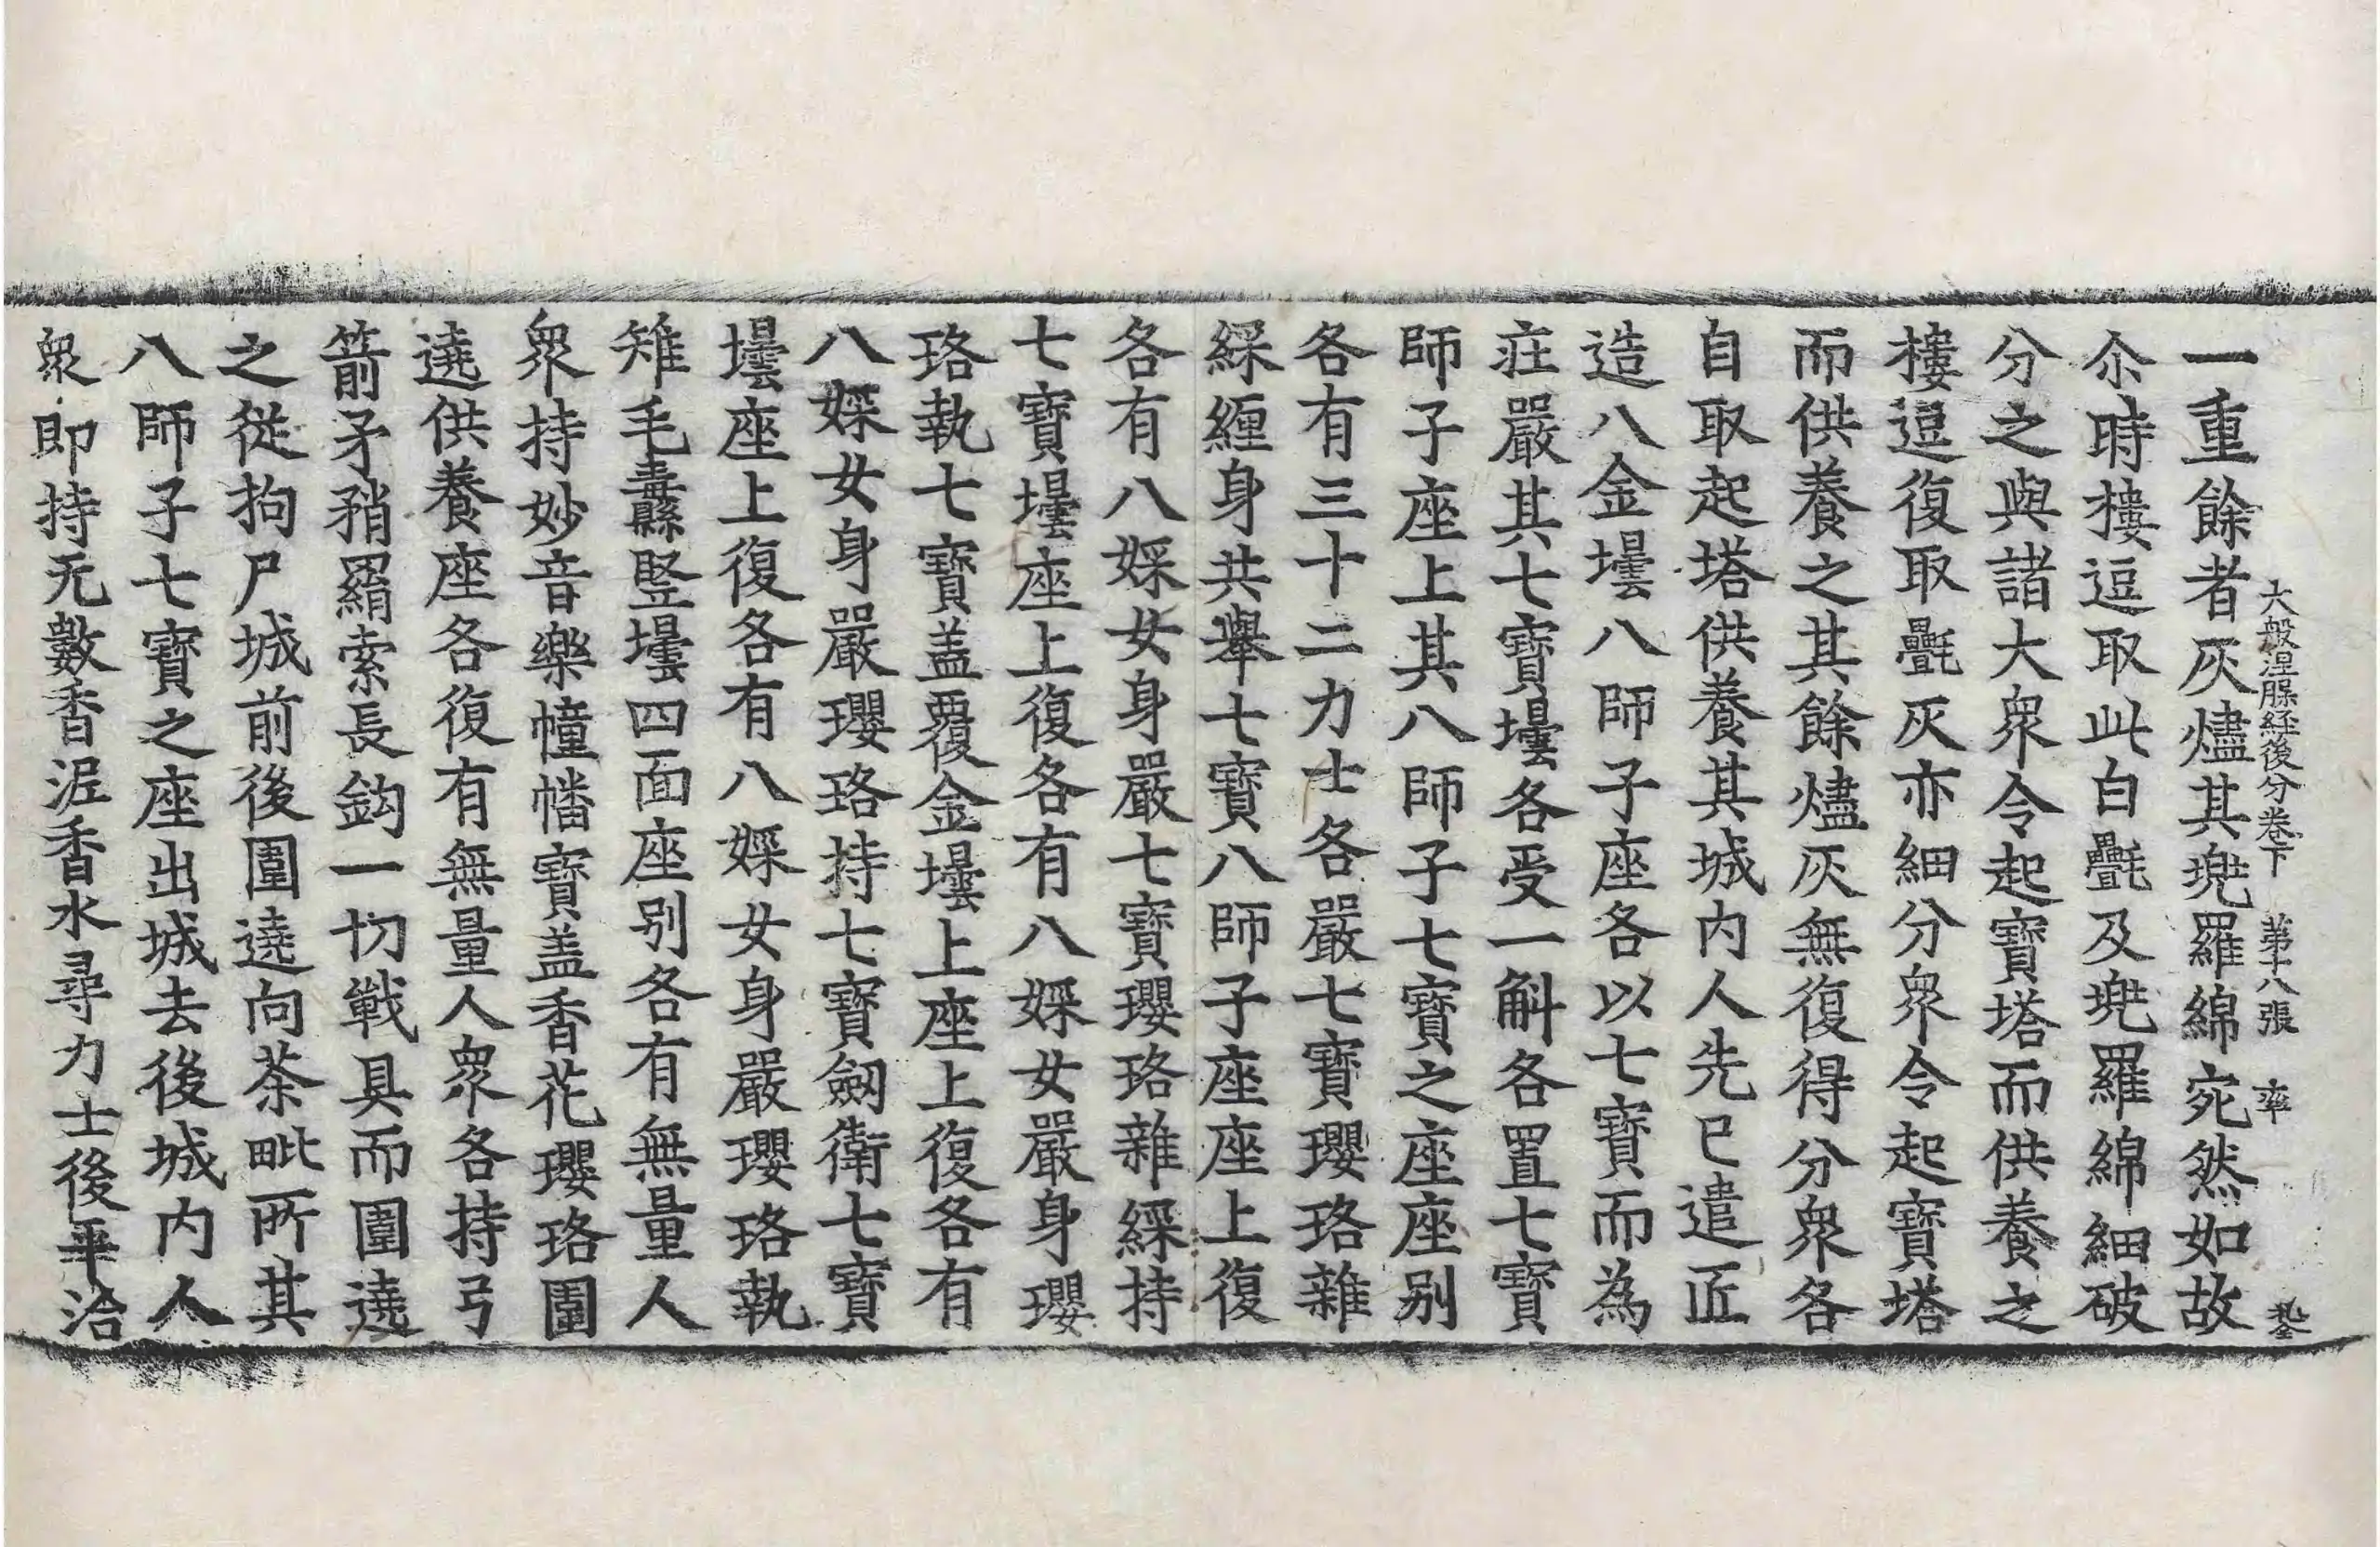 大般涅槃経後分卷下 第十八張 率
一重餘者灰燼其兠羅綿宛然如故
尒時樓逗取此白㲲及兠羅綿細破
分之與諸大衆令起寶塔而供養之
樓逗復取㲲灰亦細分衆令起寶塔
而供養之其餘燼灰無復得分衆各
自取起塔供養其城内人先已遣匠
造八金壜八師子座各以七寶而為
莊嚴其七寶壜各受一斛各置七寶
師子座上其八師子七寶之座座别
各有三十二力士各嚴七寶瓔珞雜
綵纒身共舉七寶八師子座座上復
各有八婇女身嚴七寶瓔珞雜綵持
七寶壜座上復各有八婇女嚴身瓔
珞執七寶盖覆金壜上座上復各有
八婇女身嚴瓔珞持七寶劒衛七寶
壜座上復各有八婇女身嚴瓔珞執
雉毛纛竪壜四面座别各有無量人
衆持妙音樂幢幡寶盖香花瓔珞圍
遶供養座各復有無量人衆各持弓
箭矛矟羂索長鈎一切戰具而圍遶
之従拘尸城前後圍遶向茶毗所其
八師子七寶之座出城去後城内人
衆即持无數香泥香水尋力士後平治